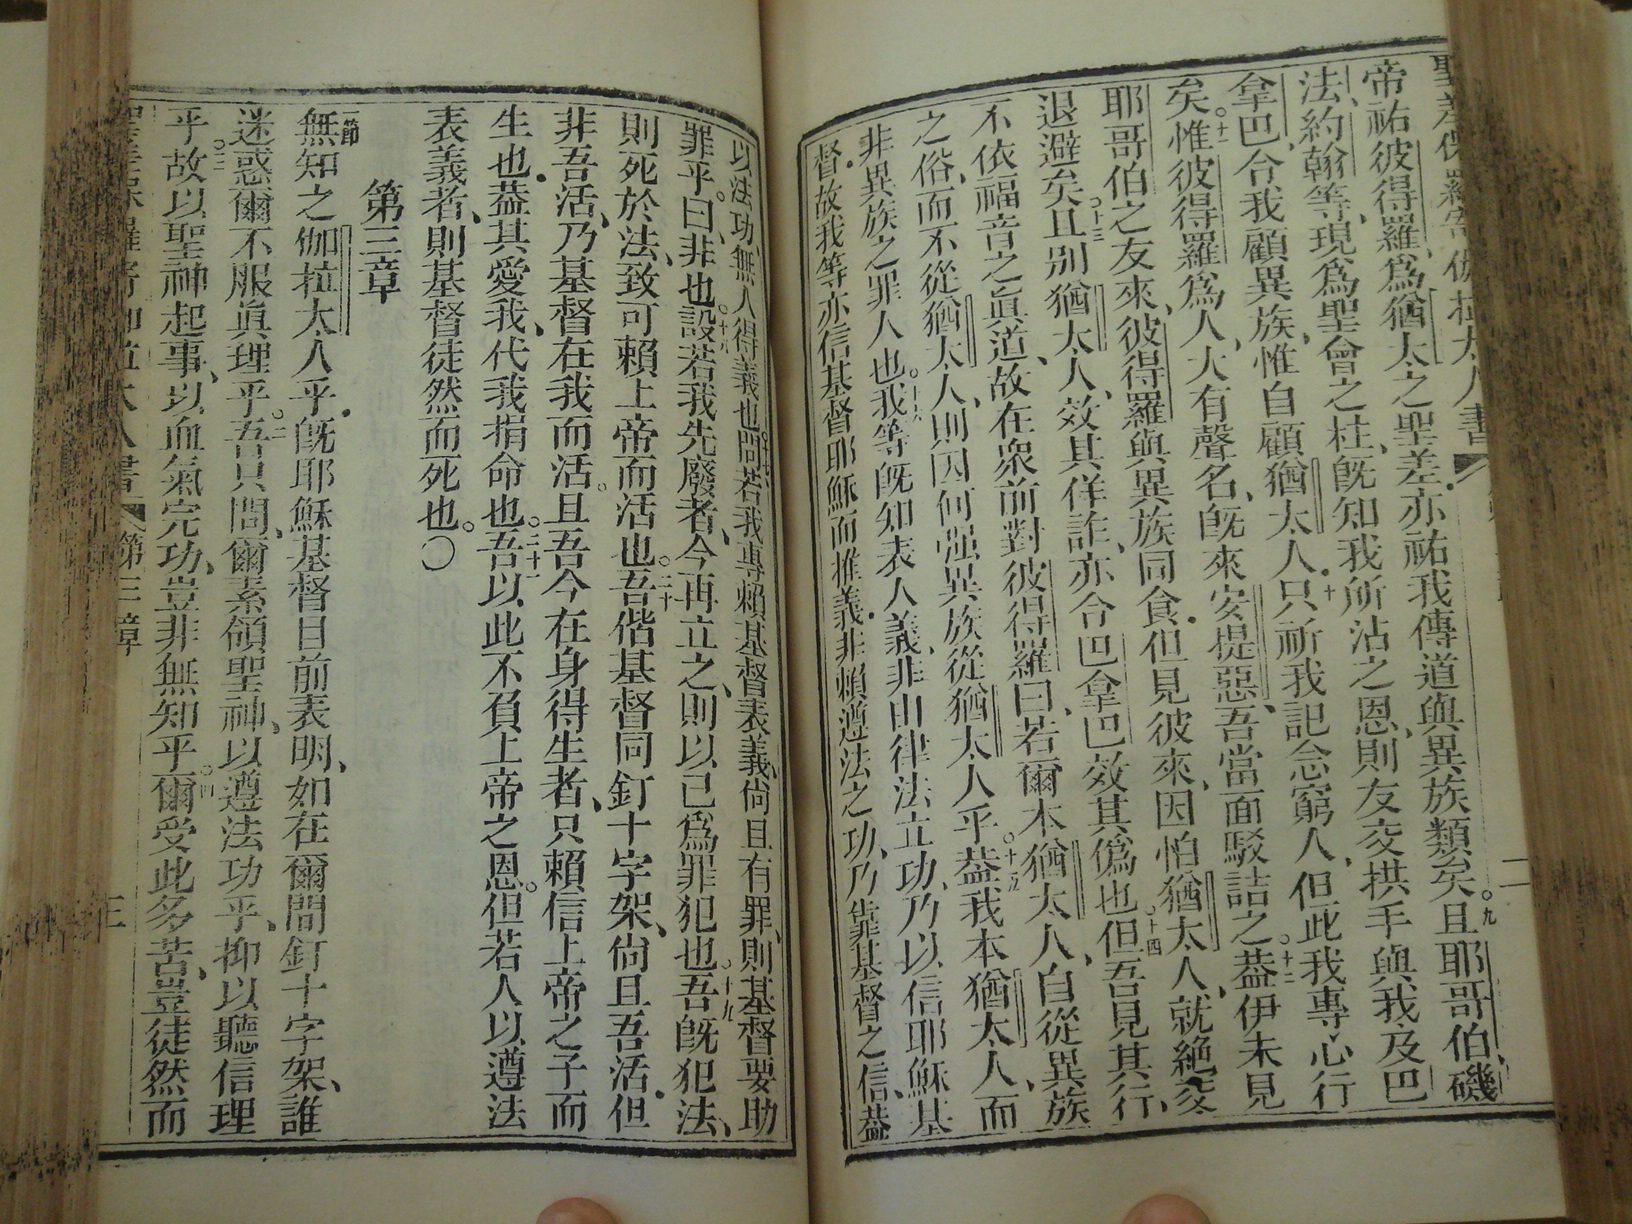 帝祐彼得羅、爲猶太之聖差、亦祐我傳道與異族類矣。九且耶哥伯、磯
法、約翰等、現爲聖會之柱、旣知我所沾之恩、則友交拱手與我及巴
拿巴、合我顧異族、惟自顧猶太人。十只祈我記念窮人、但此我專心行
矣。十一惟彼得羅爲人、大有聲名、旣來安提惡、吾當面駁詰之。十二葢伊未見
耶哥伯之友來、彼得羅與異族同食、但見彼來、因怕猶太人、就絶交
退避矣。十三且別猶太人、效其佯詐、亦合巴拿巴效其僞也。十四但吾見其行、
不依福音之眞道、故在衆前對彼得羅曰、若爾本猶太人、自從異族
之俗、而不從猶太人、則因何强異族從猶太人乎。十五葢我本猶太人、而
非異族之罪人也。十六我等旣知表人義、非由律法立功、乃以信耶穌基
督、故我等亦信基督耶穌而推義、非賴遵法之功、乃靠基督之信、葢
以法功、無人得義也。十七問若我專賴基督表義、尙且有罪、則基督要助
罪乎。曰、非也。十八設若我先廢者、今再立之、則以己爲罪犯也。十九吾旣犯法、
則死於法、致可賴上帝而活也。二十吾偕基督同釘十字架、尙且吾活、但
非吾活、乃基督在我而活。且吾今在身得生者、只賴信上帝之子而
生也、葢其愛我、代我捐命也。二十一吾以此不負上帝之恩。但若人以遵法
表義者、則基督徒然而死也。〇
第三章
一節無知之伽拉太人乎、旣耶穌基督目前表明、如在爾間釘十字架、誰
迷惑爾不服眞理乎。二吾只問、爾素領聖神、以遵法功乎、抑以聽信理
乎。三故以聖神起事、以血氣完功、豈非無知乎。四爾受此多苦、豈徒然而
第三章
三